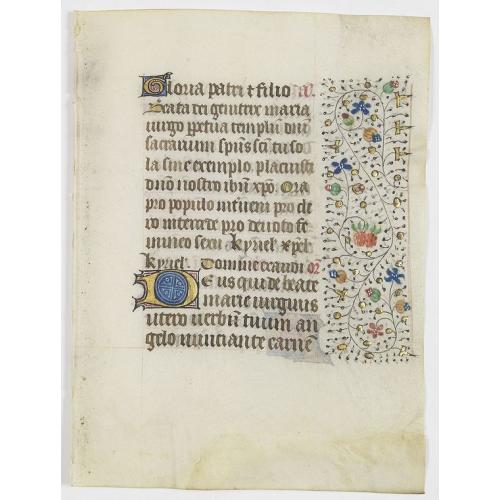 Gloria patri et filio. añ.
Beata dei genitrix maria
virgo ꝑpetua templū dn̄i
sacrarium spūs sc̄i tu so
la sine exemplo placuisti
dn̄o nostro ihū xp̄o. Ora
pro populo intrueni pro cle
ro intercede pro deuoto fe
mineo sexu. kyriel. xp̄el.
kyriel. Domine exaudi. or̄.
Deus qui de beate
marie virginis
utero verbū tuum an
gelo nunciante carnē